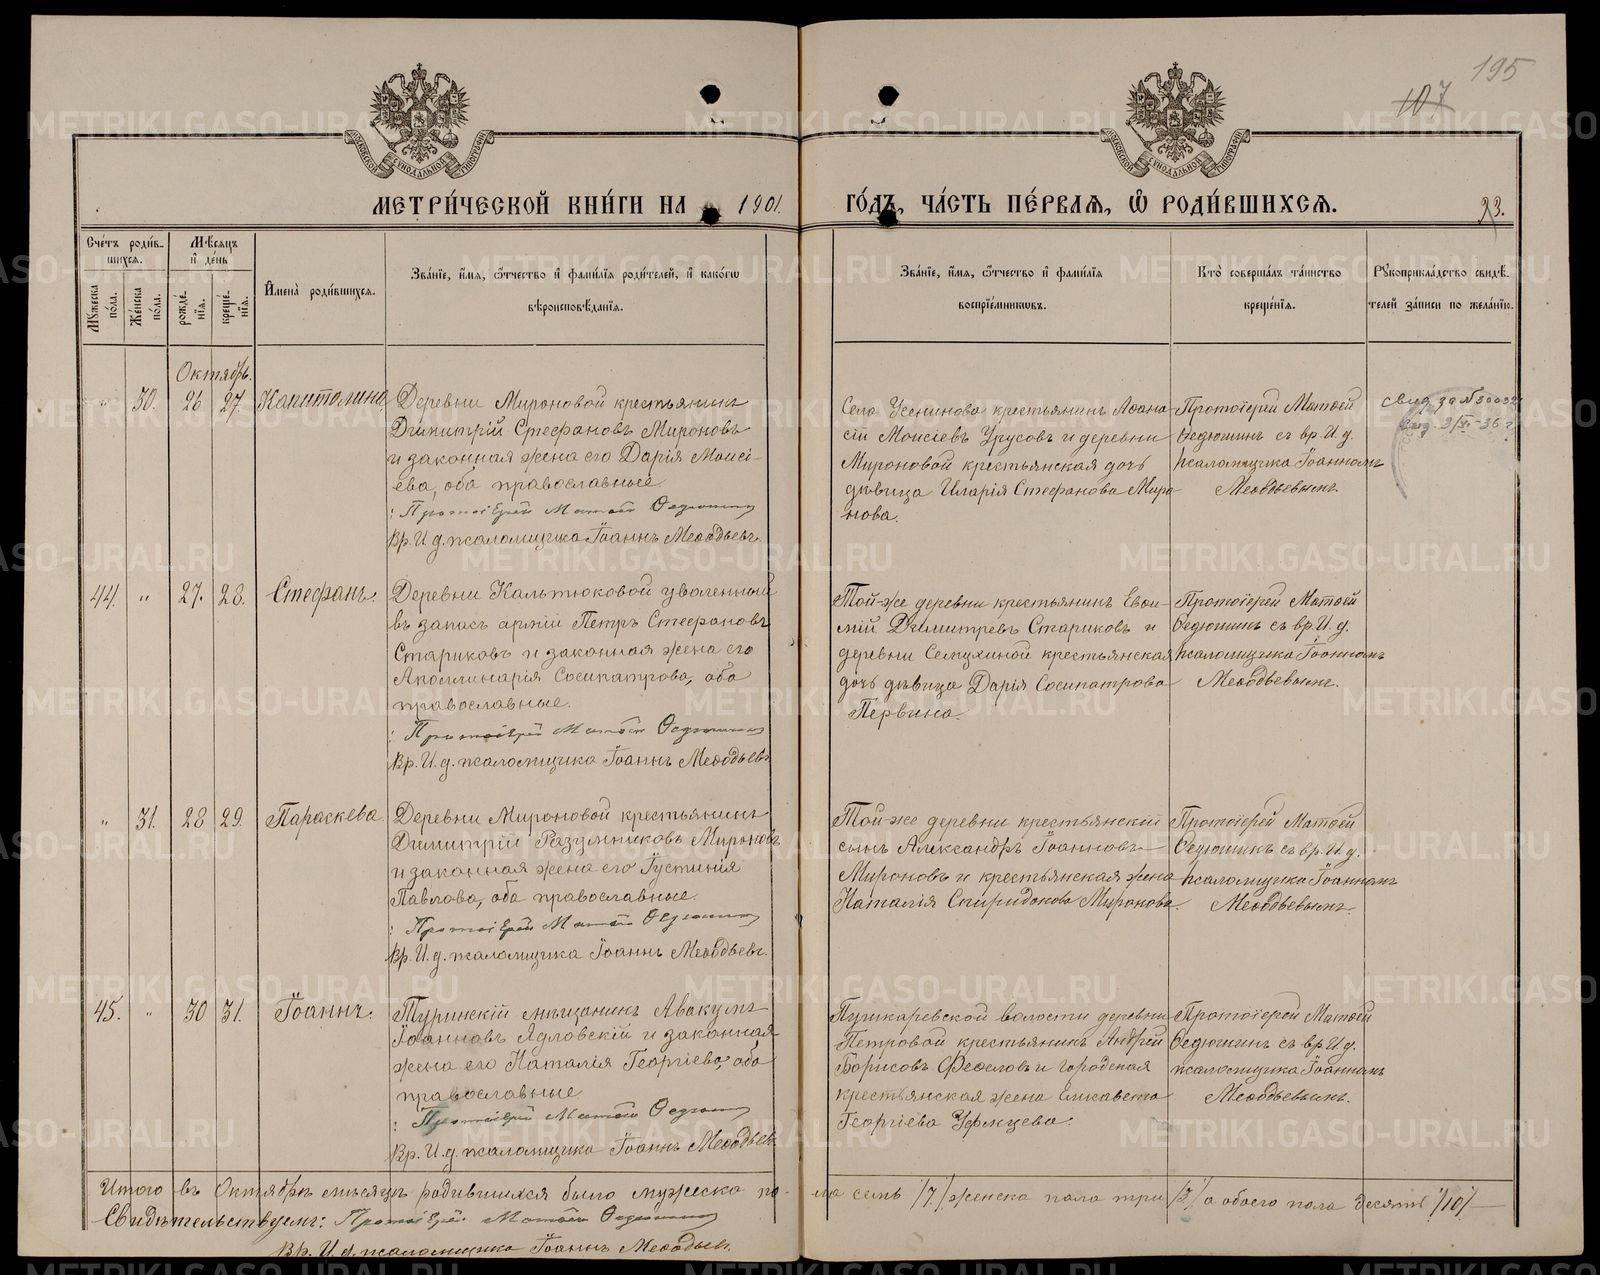 195
107
МЕТРИ́ЧЕСКОЙ КНИ́ГИ НА 1901. ГО́ДЪ, ЧА́СТЬ ПЕ́РВАЯ, Ѡ҆ РОДИ́ВШИХСЯ.
93.
Сче́тъ роди́вшихся.
Мѣ́сяцъ и҆ де́нь
Му́жеска по́ла.
Же́нска по́ла.
рожде́нїя.
креще́нїя.
И҆мена̀ роди́вшихся.
Зва́нїе, и҆́мя, ѻ҆́тчество и҆ фами́лїя роди́телей, и҆ како́гѡ
вѣроисповѣ́данїя.
Зва́нїе, и҆́мя, ѻ҆́тчество и҆ фами́лїя
воспрїе́мниковъ.
Кто̀ соверша́лъ та́инство
креще́нїя.
Рꙋкоприкла́дство свидѣ́телей за́писи по жела́нїю.
Октябрь.
" 30. 26 27. Капитолина,
Деревни Мироновой крестьянинъ
Димитрій Стефановъ Мироновъ
и законная жена его Дарія Моисі-
ева, оба православные.
: Протоіерей Матѳей Ѳедюшинъ
Вр. И. д. псаломщика Іоаннъ Меѳодьевъ.
Села Усенинова крестьянинъ Аѳана-
сій Моисіевъ Урусовъ и деревни
Мироновой крестьянская дочь
дѣвица Иларія Стефанова Миро-
нова.
Протоіерей Матѳей
Ѳедюшинъ съ вр. И. д.
псаломщика Іоанномъ
Меѳодьевымъ.
44. " 27. 28. Стефанъ.
Деревни Кальтюковой уволенный
въ запасъ арміи Петръ Стефановъ
Стариковъ и законная жена его
Аполлинарія Сосипатрова, оба
православные.
: Протоіерей Матѳей Ѳедюшинъ
Вр. И. д. псаломщика Іоаннъ Меѳодьевъ
Той-же деревни крестьянинъ Евѳи-
мій Димитріевъ Стариковъ и
деревни Семухиной крестьянская
дочь дѣвица Дарія Сосипатрова
Первина.
Протоіерей Матѳей
Ѳедюшинъ съ вр. И. д.
псаломщика Іоанномъ
Меѳодьевымъ.
" 31. 28 29. Параскева.
Деревни Мироновой крестьянинъ
Димитрій Разумниковъ Мироновъ
и законная жена его Іустинія
Павлова, оба православные.
: Протоіерей Матѳей Ѳедюшинъ
Вр. И. д. псаломщика Іоаннъ Меѳодьевъ.
Той-же деревни крестьянскій
сынъ Александръ Іоанновъ
Мироновъ и крестьянская жена
Наталія Спиридонова Миронова.
Протоіерей Матѳей
Ѳедюшинъ съ вр. И. д.
псаломщика Іоанномъ
Меѳодьевымъ.
45. " 30 31. Іоаннъ.
Туринскій мѣщанинъ Авакумъ
Іоанновъ Ядловскій и законная
жена его Наталія Георгіева, оба
православные
: Протоіерей Матѳей Ѳедюшинъ
Вр. И. д. псаломщика Іоаннъ Меѳодьевъ
Пушкаревской волости деревни
Петровой крестьянинъ Андрей
Борисовъ Феѳеловъ и городская
крестьянская жена Елисавета
Георгіева Уфимцева.
Протоіерей Матѳей
Ѳедюшинъ съ вр. И. д.
псаломщика Іоанномъ
Меѳодьевымъ.
Итого въ Октябрѣ мѣсяцѣ родившихся было мужеска по- ла семь /7/, женска пола три /3/ а обоего пола десять /10/
Свидѣтельствуемъ: Протоіерей Матѳей Ѳедюшинъ
Вр. И. д. псаломщика Іоаннъ Меѳодьевъ.